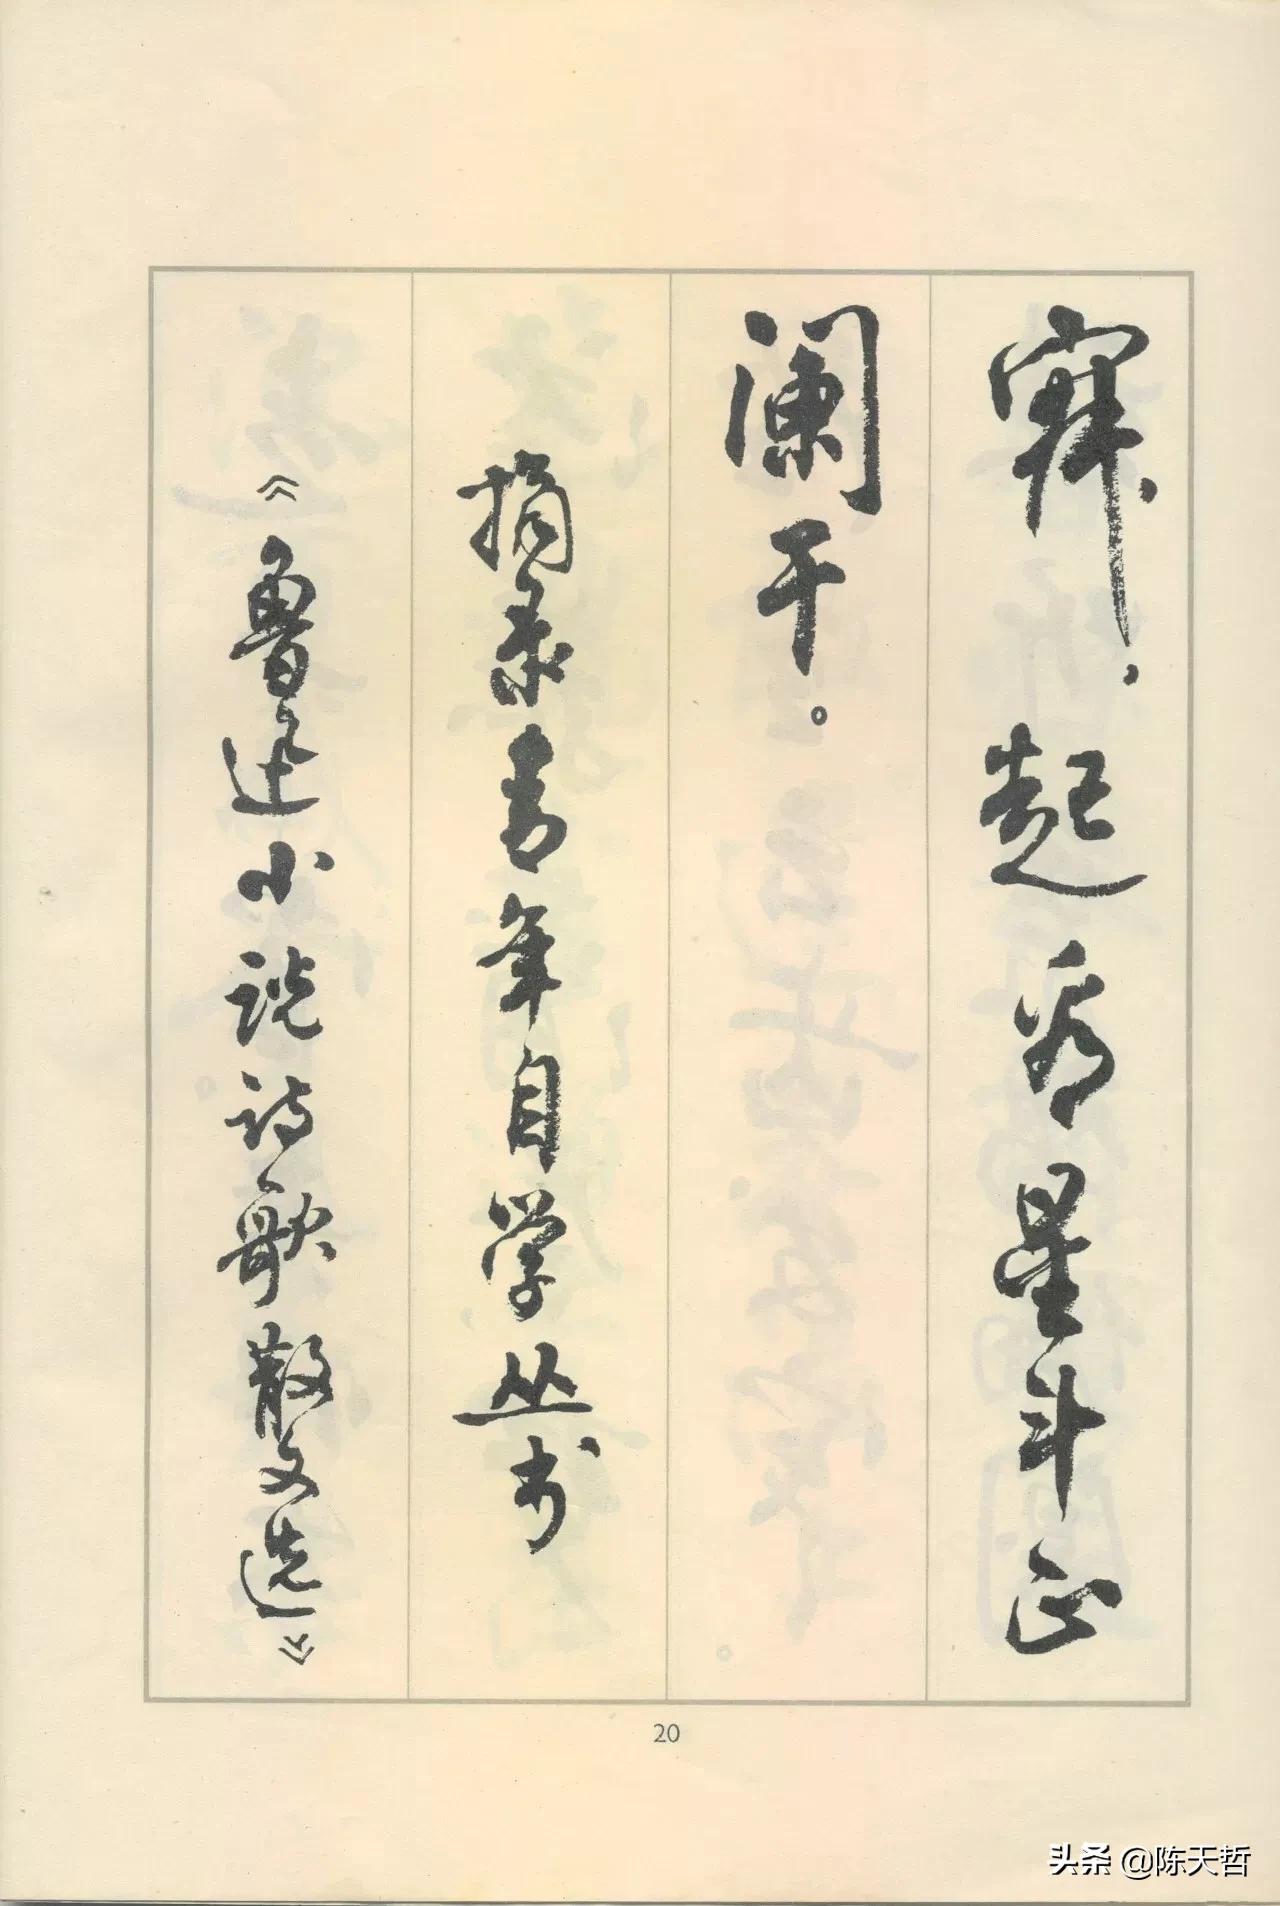 寂，起看星斗正
阑干。
摘录青年自学丛书
《鲁迅小说诗歌散文选》
20
头条 @陈天哲